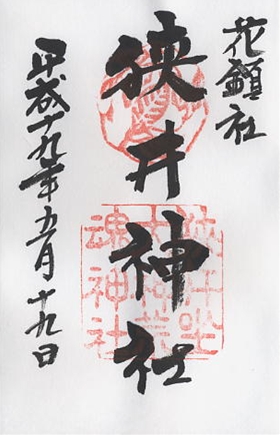 花鎮社
狭井神社
平成十九年五月十九日
狭井坐
大神荒
魂神社